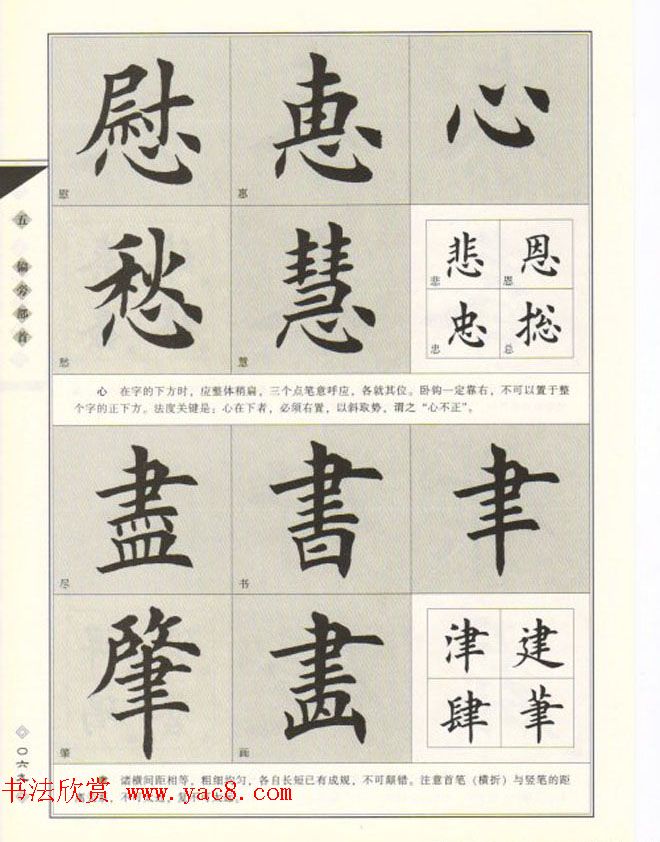 慰 惠 心
慰 惠
愁 慧
愁 慧
悲 恩
悲 恩
忠 總
忠 总
心 在字的下方时，应整体稍扁，三个点笔意呼应，各就其位。卧钩一定靠右，不可以置于整
个字的正下方。法度关键是：心在下者，必须右置，以斜取势，谓之“心不正”。
盡 書 聿
尽 书
肇 畫
肇 画
津 建
肆 筆
诸横间距相等，粗细均匀，各自长短已有成规，不可颠错。注意首笔（横折）与竖笔的距
五 偏旁部首
〇六九
书法欣赏 www.yac8.com